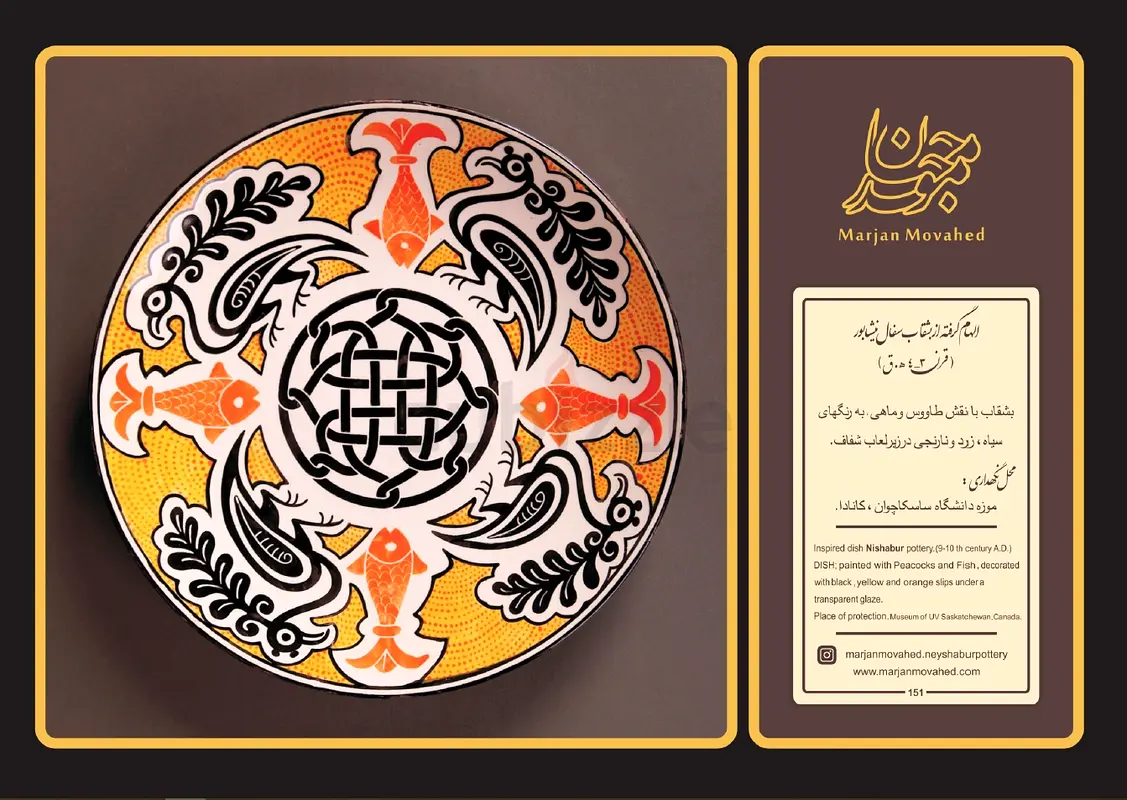 مرجان موحد
Marjan Movahed
الهام گرفته از بشقاب سفال نیشابور
(قرن ۳_۴ ه.ق)
بشقاب با نقش طاووس و ماهی، به رنگهای
سیاه ، زرد و نارنجی در زیر لعاب شفاف.
محل نگهداری :
موزه دانشگاه ساسکاچوان ، کانادا.
Inspired dish Nishabur pottery.(9-10 th century A.D.)
DISH; painted with Peacocks and Fish, decorated
with black , yellow and orange slips under a
transparent glaze.
Place of protection. Museum of UV Saskatchewan,Canada.
marjanmovahed.neyshaburpottery
www.marjanmovahed.com
151